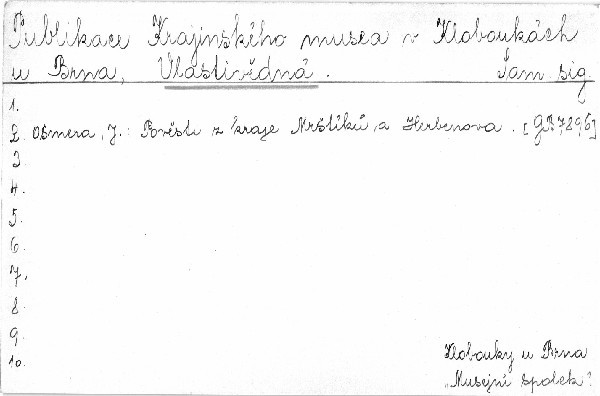 Publikace Krajinského musea v Kloboukách
u Brna, Vlastivědná. Sam. sig.
1.
2. Ošmera, J.: Pověsti z kraje Mrštíků a Herbenova. [GR 7896]
3
4.
5.
6.
7.
8.
9.
10.
Klobouky u Brna
"Musejní spolek"